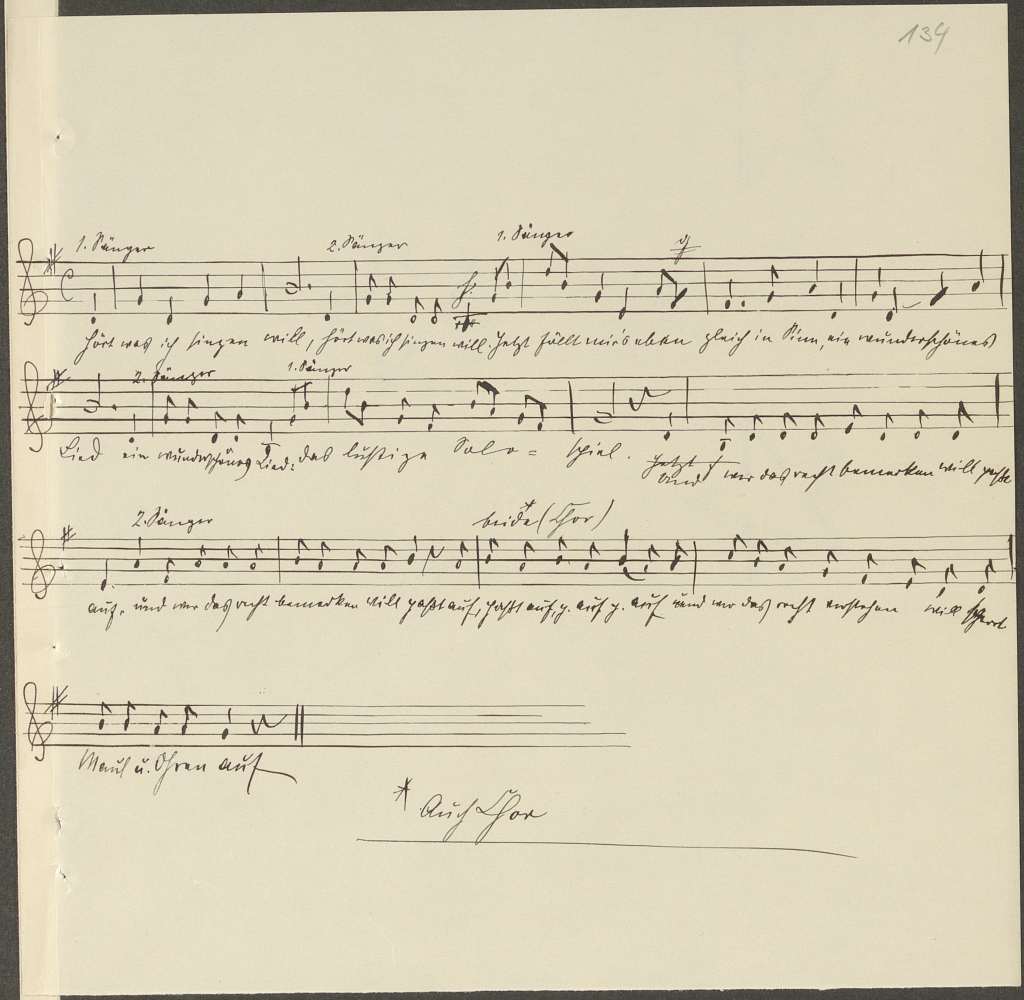 134
1. Sänger 2. Sänger 1. Sänger
Hört was ich singen will, hört was ich singen will. Jetzt fällt mir's eben gleich in Sinn, ein wunderschönes
2. Sänger 1. Sänger
Lied ein wunderschönes Lied: das lustige Solo = spiel. Jetzt
und wer das recht bemerken will paßt
2. Sänger beide * (Chor)
auf, und wer das recht bemerken will paßt auf, paßt auf, p. auf p. auf und wer das recht verstehen will sperrt
Maul u. Ohren auf
* Auch Chor